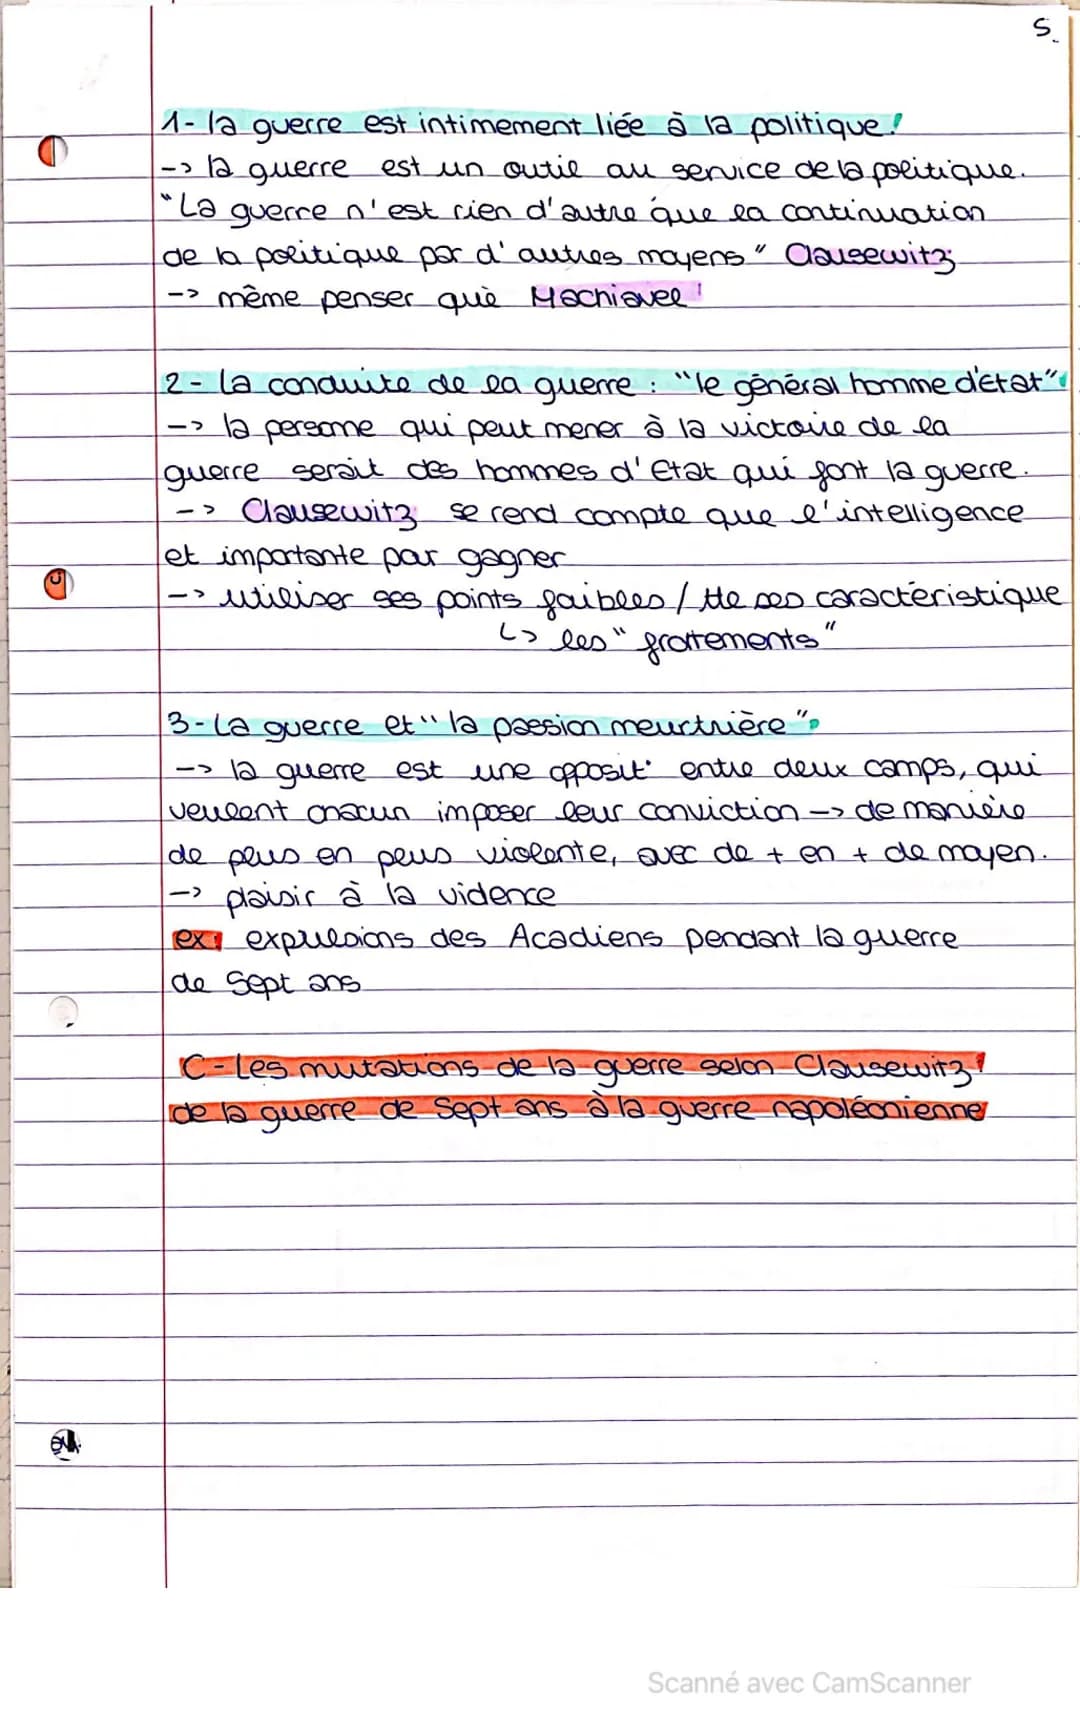 5.
1- la guerre est intimement liée à la politique!
-> la guerre est un outil au service de la politique.
"La guerre n'est rien d'autre que la continuation
de la politique par d'autres moyens" Clausewitz
-> même penser que Machiavel!
2- La conduite de la guerre : "le général homme d'état"
-> la personne qui peut mener à la victoire de la
guerre serait des hommes d'Etat qui font la guerre.
-> Clausewitz se rend compte que l'intelligence
et importante par gagner
-> utiliser ses points faibles / tte ses caractéristique
↳ les "frottements"
3- La guerre et "la passion meurtrière"
-> la guerre est une opposit° entre deux camps, qui
veulent chacun imposer leur conviction -> de manière
de plus en plus violente, avec de + en + de moyen.
-> plaisir à la violence
ex: expulsions des Acadiens pendant la guerre
de Sept ans
C- Les mutations de la guerre selon Clausewitz!
de la guerre de Sept ans à la guerre napoléonienne
Scanné avec CamScanner